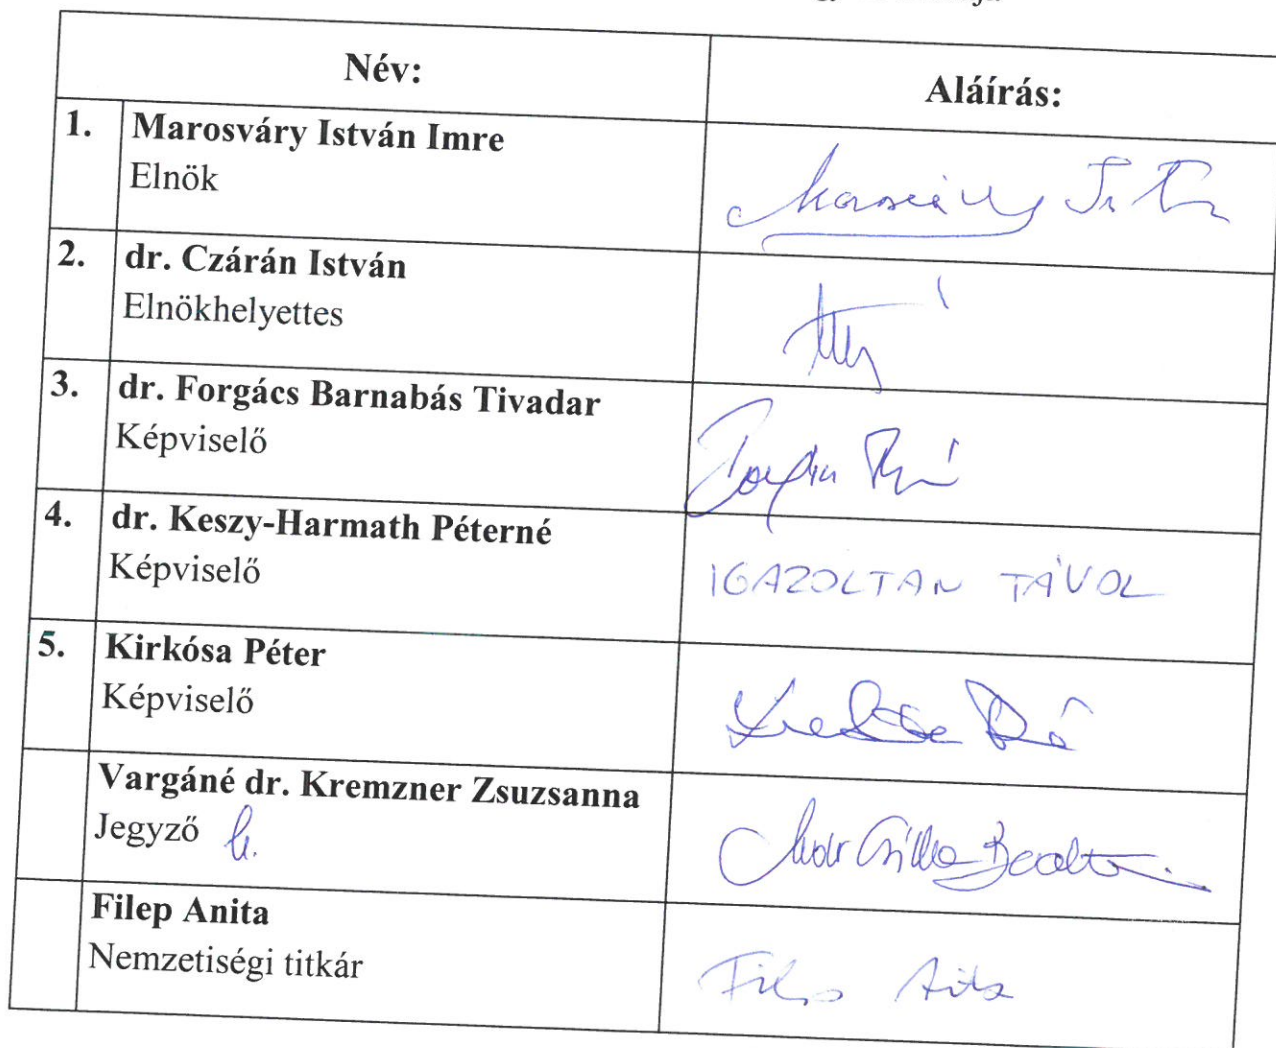 Név:
Aláírás:
1.
Marosváry István Imre
Elnök
2.
dr. Czárán István
Elnökhelyettes
3.
dr. Forgács Barnabás Tivadar
Képviselő
4.
dr. Keszy-Harmath Péterné
Képviselő
IGAZOLTAN TÁVOL
5.
Kirkósa Péter
Képviselő
Vargáné dr. Kremzner Zsuzsanna
Jegyző
Filep Anita
Nemzetiségi titkár
Filep Anita